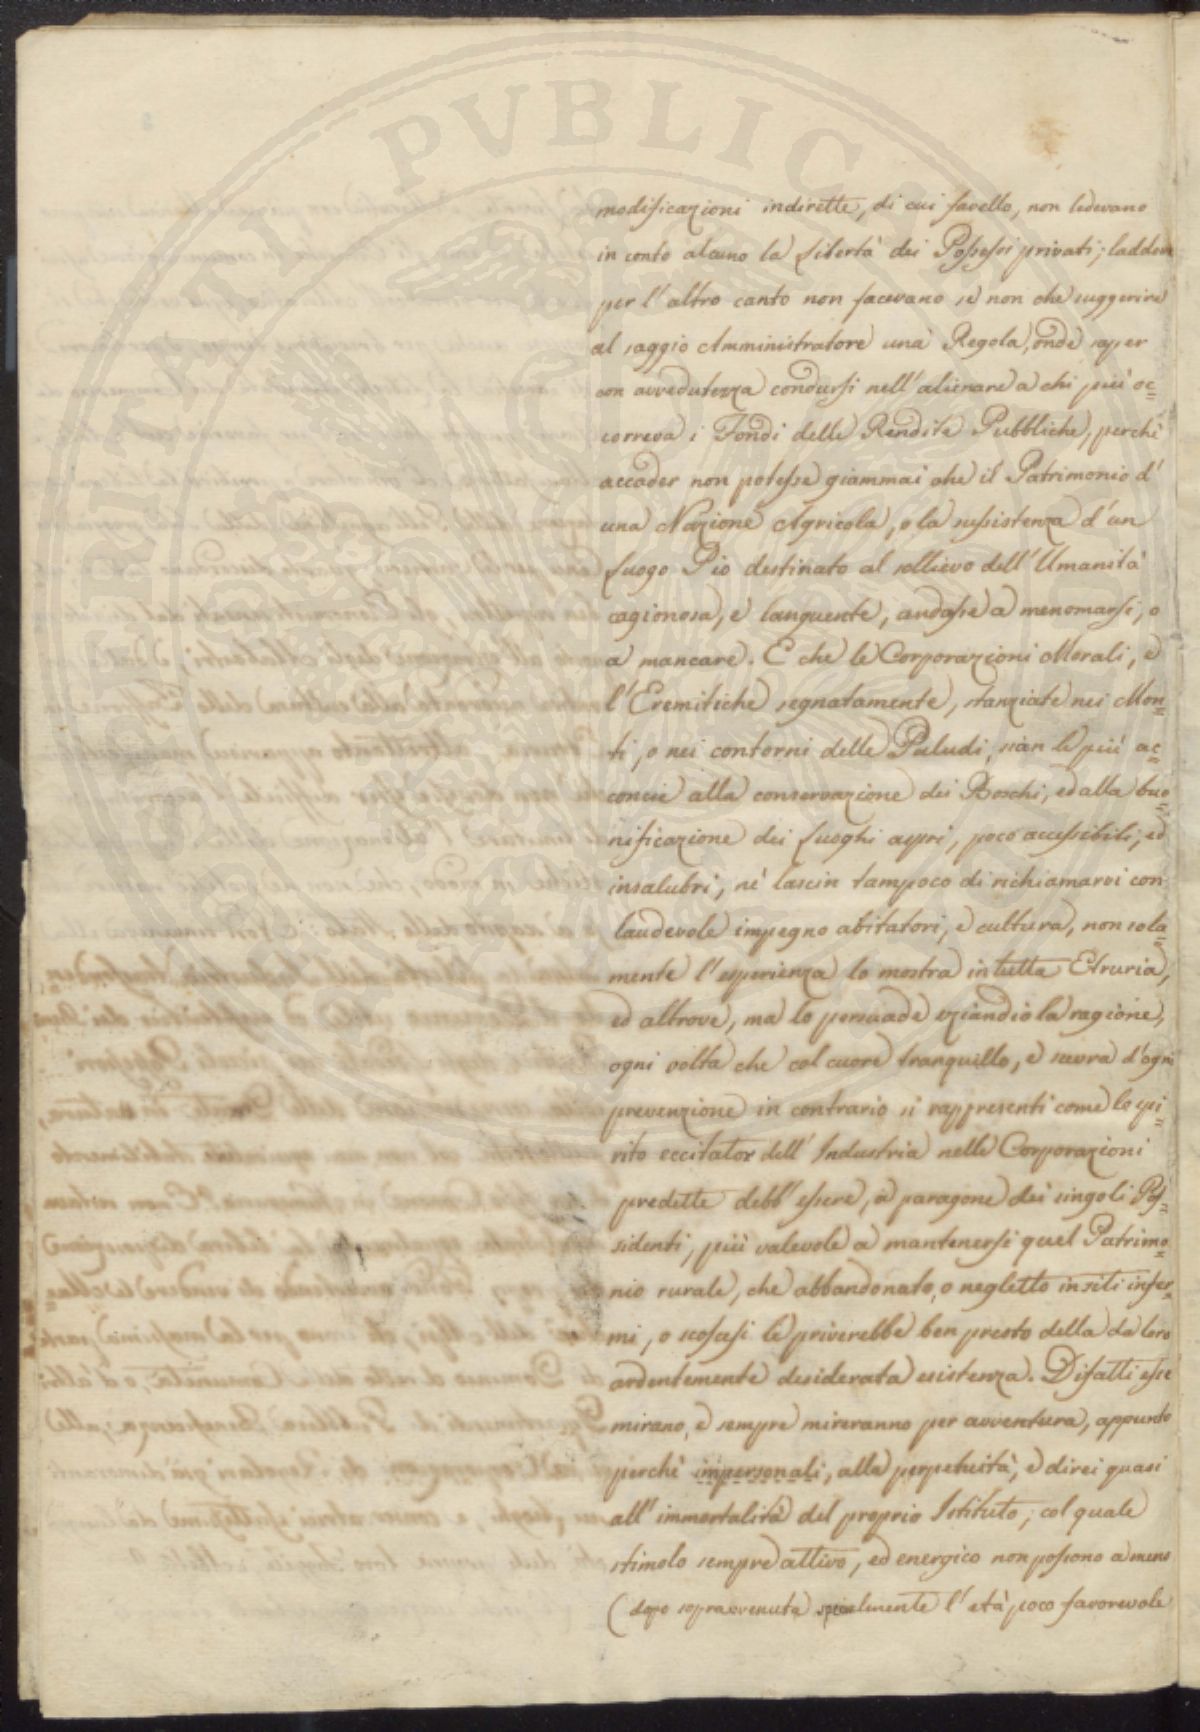 modificazioni indirette, di cui favello, non ledevano
in conto alcuno la Libertà dei Possessi privati; laddove
per l'altro canto non facevano se non che suggerire
al saggio Amministratore una Regola, onde saper
con avvedutezza condursi nell'alienare a chi più oc=
correva i Fondi delle Rendite Pubbliche, perchè
accader non potesse giammai che il Patrimonio d'
una Nazione Agricola, o la sussistenza d'un
Luogo Pio destinato al sollievo dell'Umanità
cagionosa, e languente, andasse a menomarsi, o
a mancare. E che le Corporazioni Morali, e
l'Eremitiche segnatamente, stanziate nei Mon=
ti, o nei contorni delle Paludi, sian le più ac=
concie alla conservazione dei Boschi, ed alla buo=
nificazione dei Luoghi aspri, poco accessibili, ed
insalubri, nè lascin tampoco di richiamarvi con
laudevole impegno abitatori, e cultura, non sola=
mente l'esperienza lo mostra in tutta Etruria,
ed altrove, ma lo persuade eziandio la ragione,
ogni volta che col cuore tranquillo, e scevra d'ogni
prevenzione in contrario si rappresenti come lo spi=
rito eccitator dell'Industria nelle Corporazioni
predette debb'essere, a paragone dei singoli Pos=
sidenti, più valevole a mantenersi quel Patrimo=
nio rurale, che abbandonato, o negletto in siti infer=
mi, o scoscesi le priverebbe ben presto della da loro
ardentemente desiderata esistenza. Difatti esse
mirano, e sempre mireranno per avventura, appunto
perchè impersonali, alla perpetuità, e direi quasi
all'immortalità del proprio Istituto; col quale
stimolo sempre attivo, ed energico non possono a meno
(dopo sopravvenuta specialmente l'età poco favorevole
PVBLICI